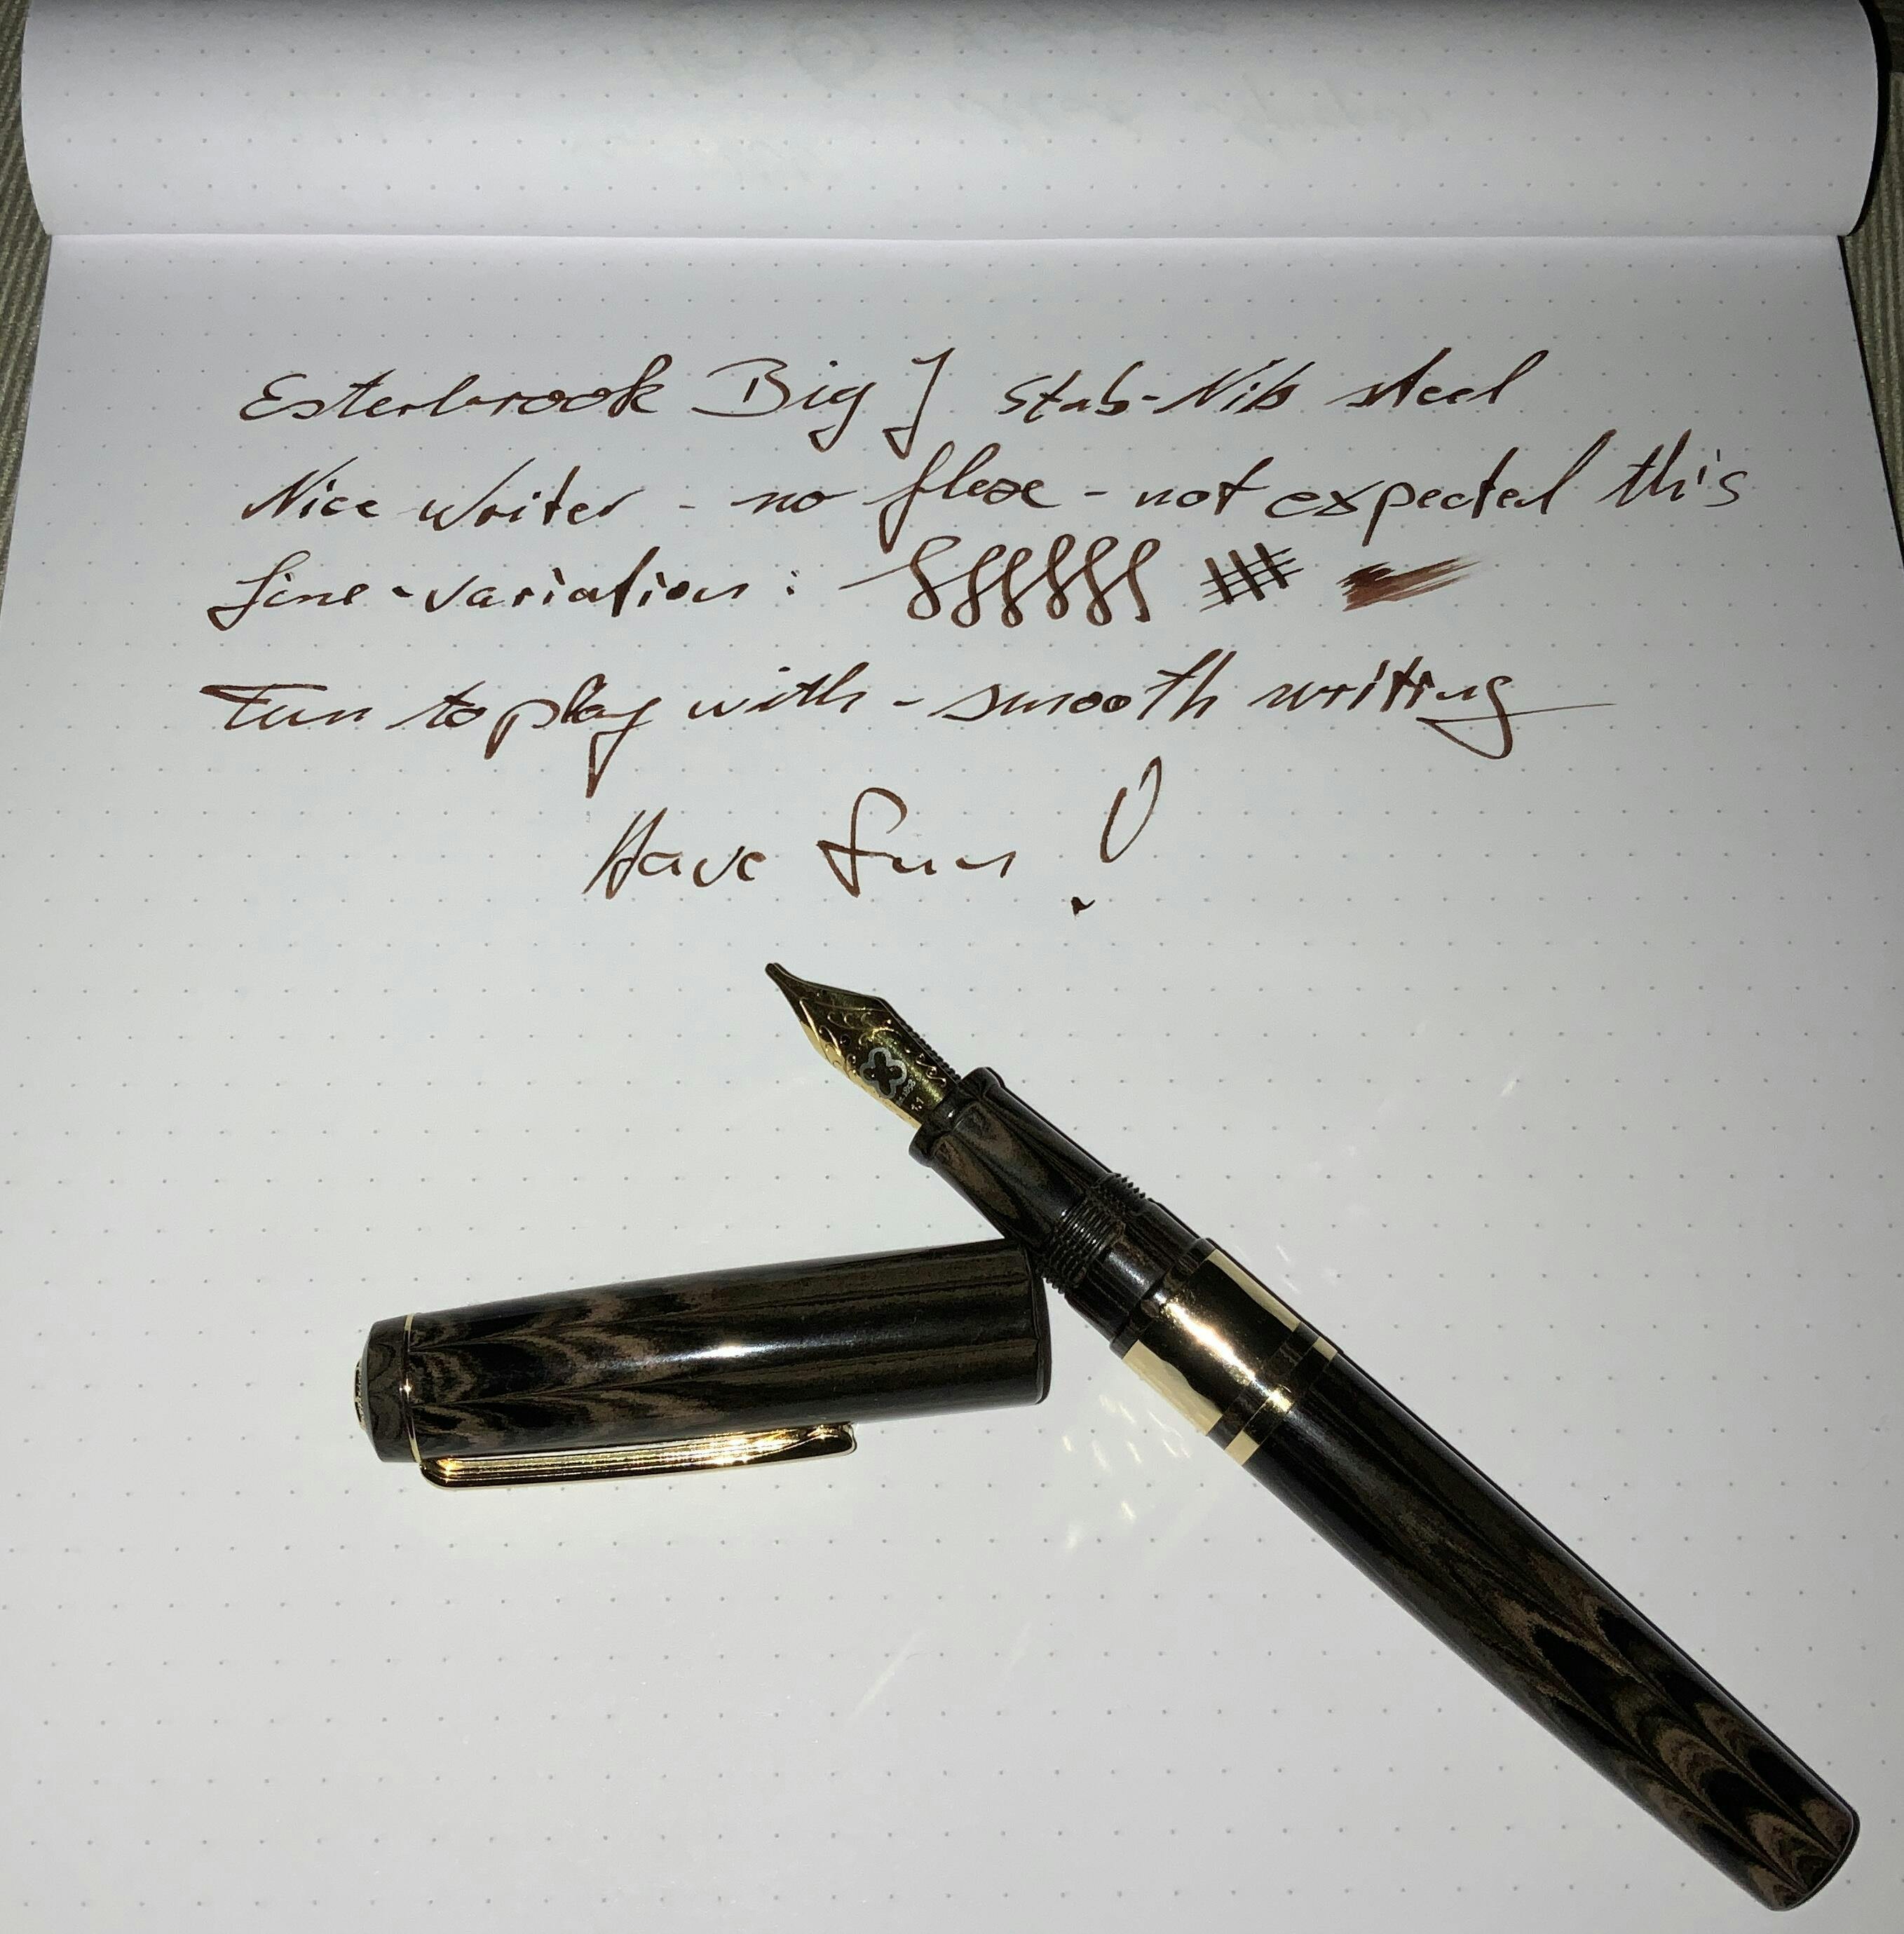 Esterbrook Big J Stub-Nib steel
Nice writer - no flex - not expected this
line-variation :
Fun to play with - smooth writing
Have fun !
1.1